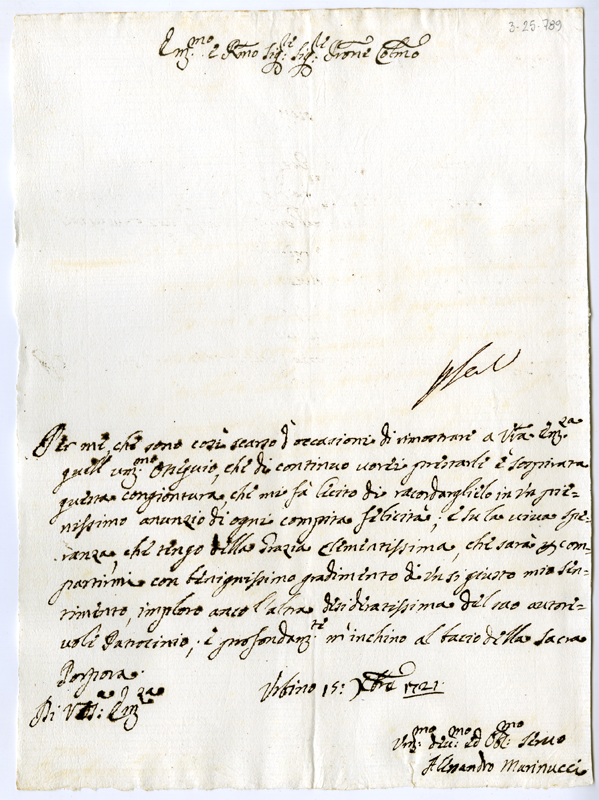 3-25-789
Em.mo e Rmo Sig.re Sig.re Prone Colmo
Per me, che sono così scarso d'occasioni di rimostrare a Vra Em.za
quell'um.mo Ossequio, che di continuo vorei prestarli è sospirata
questa congiontura, che mi fà lecito di racordarglielo in un pie-
nissimo anunzio di ogni compita felicità; e su la viva spe-
ranza, che tengo della Grazia Clementissima, che sarà p com-
partirmi con benignissimo gradimento di un sì giusto mio sen-
timento, imploro anco l'altra desideratissima del suo autore-
vole Patrocinio; e profondam.te m'inchino al bacio della sacra
Porpora.
Di V.ra Em.za
Urbino 15: Xbre 1721
Um.mo dev.mo ed Obl.mo Servo
Alessandro Marinucci